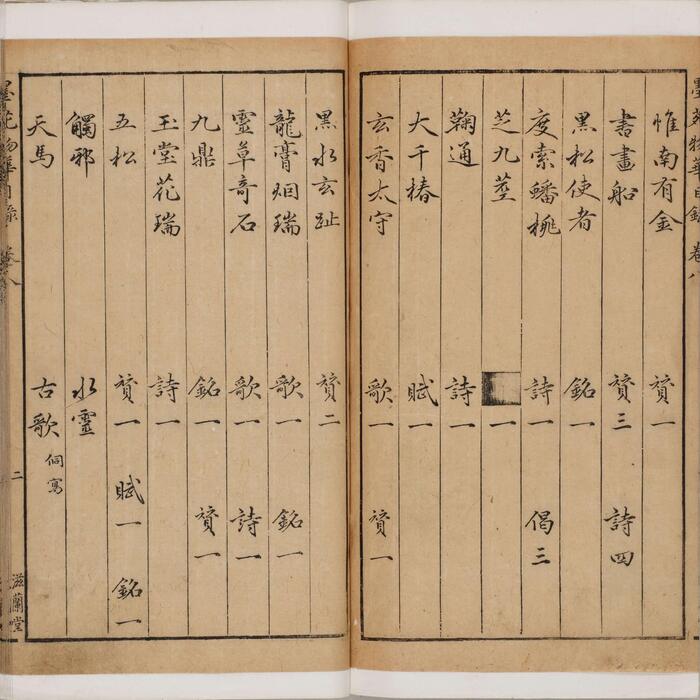 墨苑物華目錄 卷八
惟南有金 贊一
書畫船 贊三 詩四
黑松使者 銘一
度索蟠桃 詩一 偈三
芝九莖 一
鞠通 詩一
大千椿 賦一
玄香太守 歌一 贊一
黑水玄趾 贊二
龍膏烟瑞 歌一 銘一
靈草奇石 歌一 詩一
九鼎 銘一 贊一
玉堂花瑞 詩一
五松 贊一 賦一 銘一
觸邪 水靈
天馬 古歌 侗寫
墨苑物華目錄 卷八 二 滋蘭堂